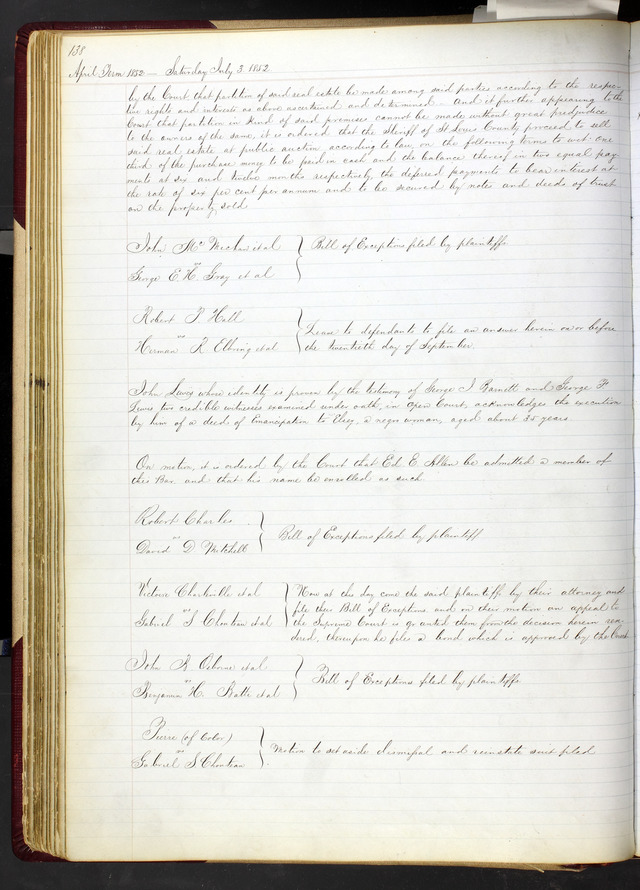 138
April Term 1852 — Saturday July 3. 1852
by the Court that partition of said real estate be made among said parties according to the respec-
tive rights and interests as above ascertained and determined. And it further appearing to the
Court that partition in kind of said premises cannot be made without great prejudice
to the owners of the same, it is ordered that the Sheriff of St Louis County proceed to sell
said real estate at public auction according to law, on the following terms to wit: one
third of the purchase money to be paid in cash and the balance thereof in two equal pay-
ments at six and twelve months respectively the deferred payments to bear interest at
the rate of six per cent per annum and to be secured by notes and deeds of trust
on the property sold
John Mc Mechan et al
vs
George E. H. Gray et al
Bill of Exceptions filed by plaintiffs
Robert P. Hall
vs
Herman R Ebbing et al
Leave to defendants to file an answer herein on or before
the twentieth day of September
John Lewis whose identity is proven by the testimony of George I Barnett and George F
Lewis two credible witnesses examined under oath, in open Court, acknowledges the execution
by him of a deed of Emancipation to Elsey, a negro woman, aged about 35 years
On motion, it is ordered by the Court that Ed. E. Allen be admitted a member of
this Bar and that his name be enrolled as such
Robert Charles
vs
David D Mitchell
Bill of Exceptions filed by plaintiff
Victoire Charleville et al
vs
Gabriel S Chouteau et al
Now at this day come the said plaintiffs by their attorney and
file their Bill of Exceptions and on their motion an appeal to
the Supreme Court is granted them from the decision herein ren-
dered, thereupon he files a bond which is approved by the Court
John R Osborne et al
vs
Benjamin H. Batte et al
Bill of Exceptions filed by plaintiffs
Pierre (of Color)
vs
Gabriel S Chouteau
Motion to set aside dismissal and reinstate suit filed